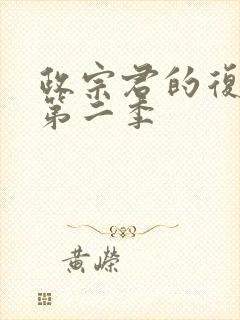 政宗君的復
第二季
黃嶸